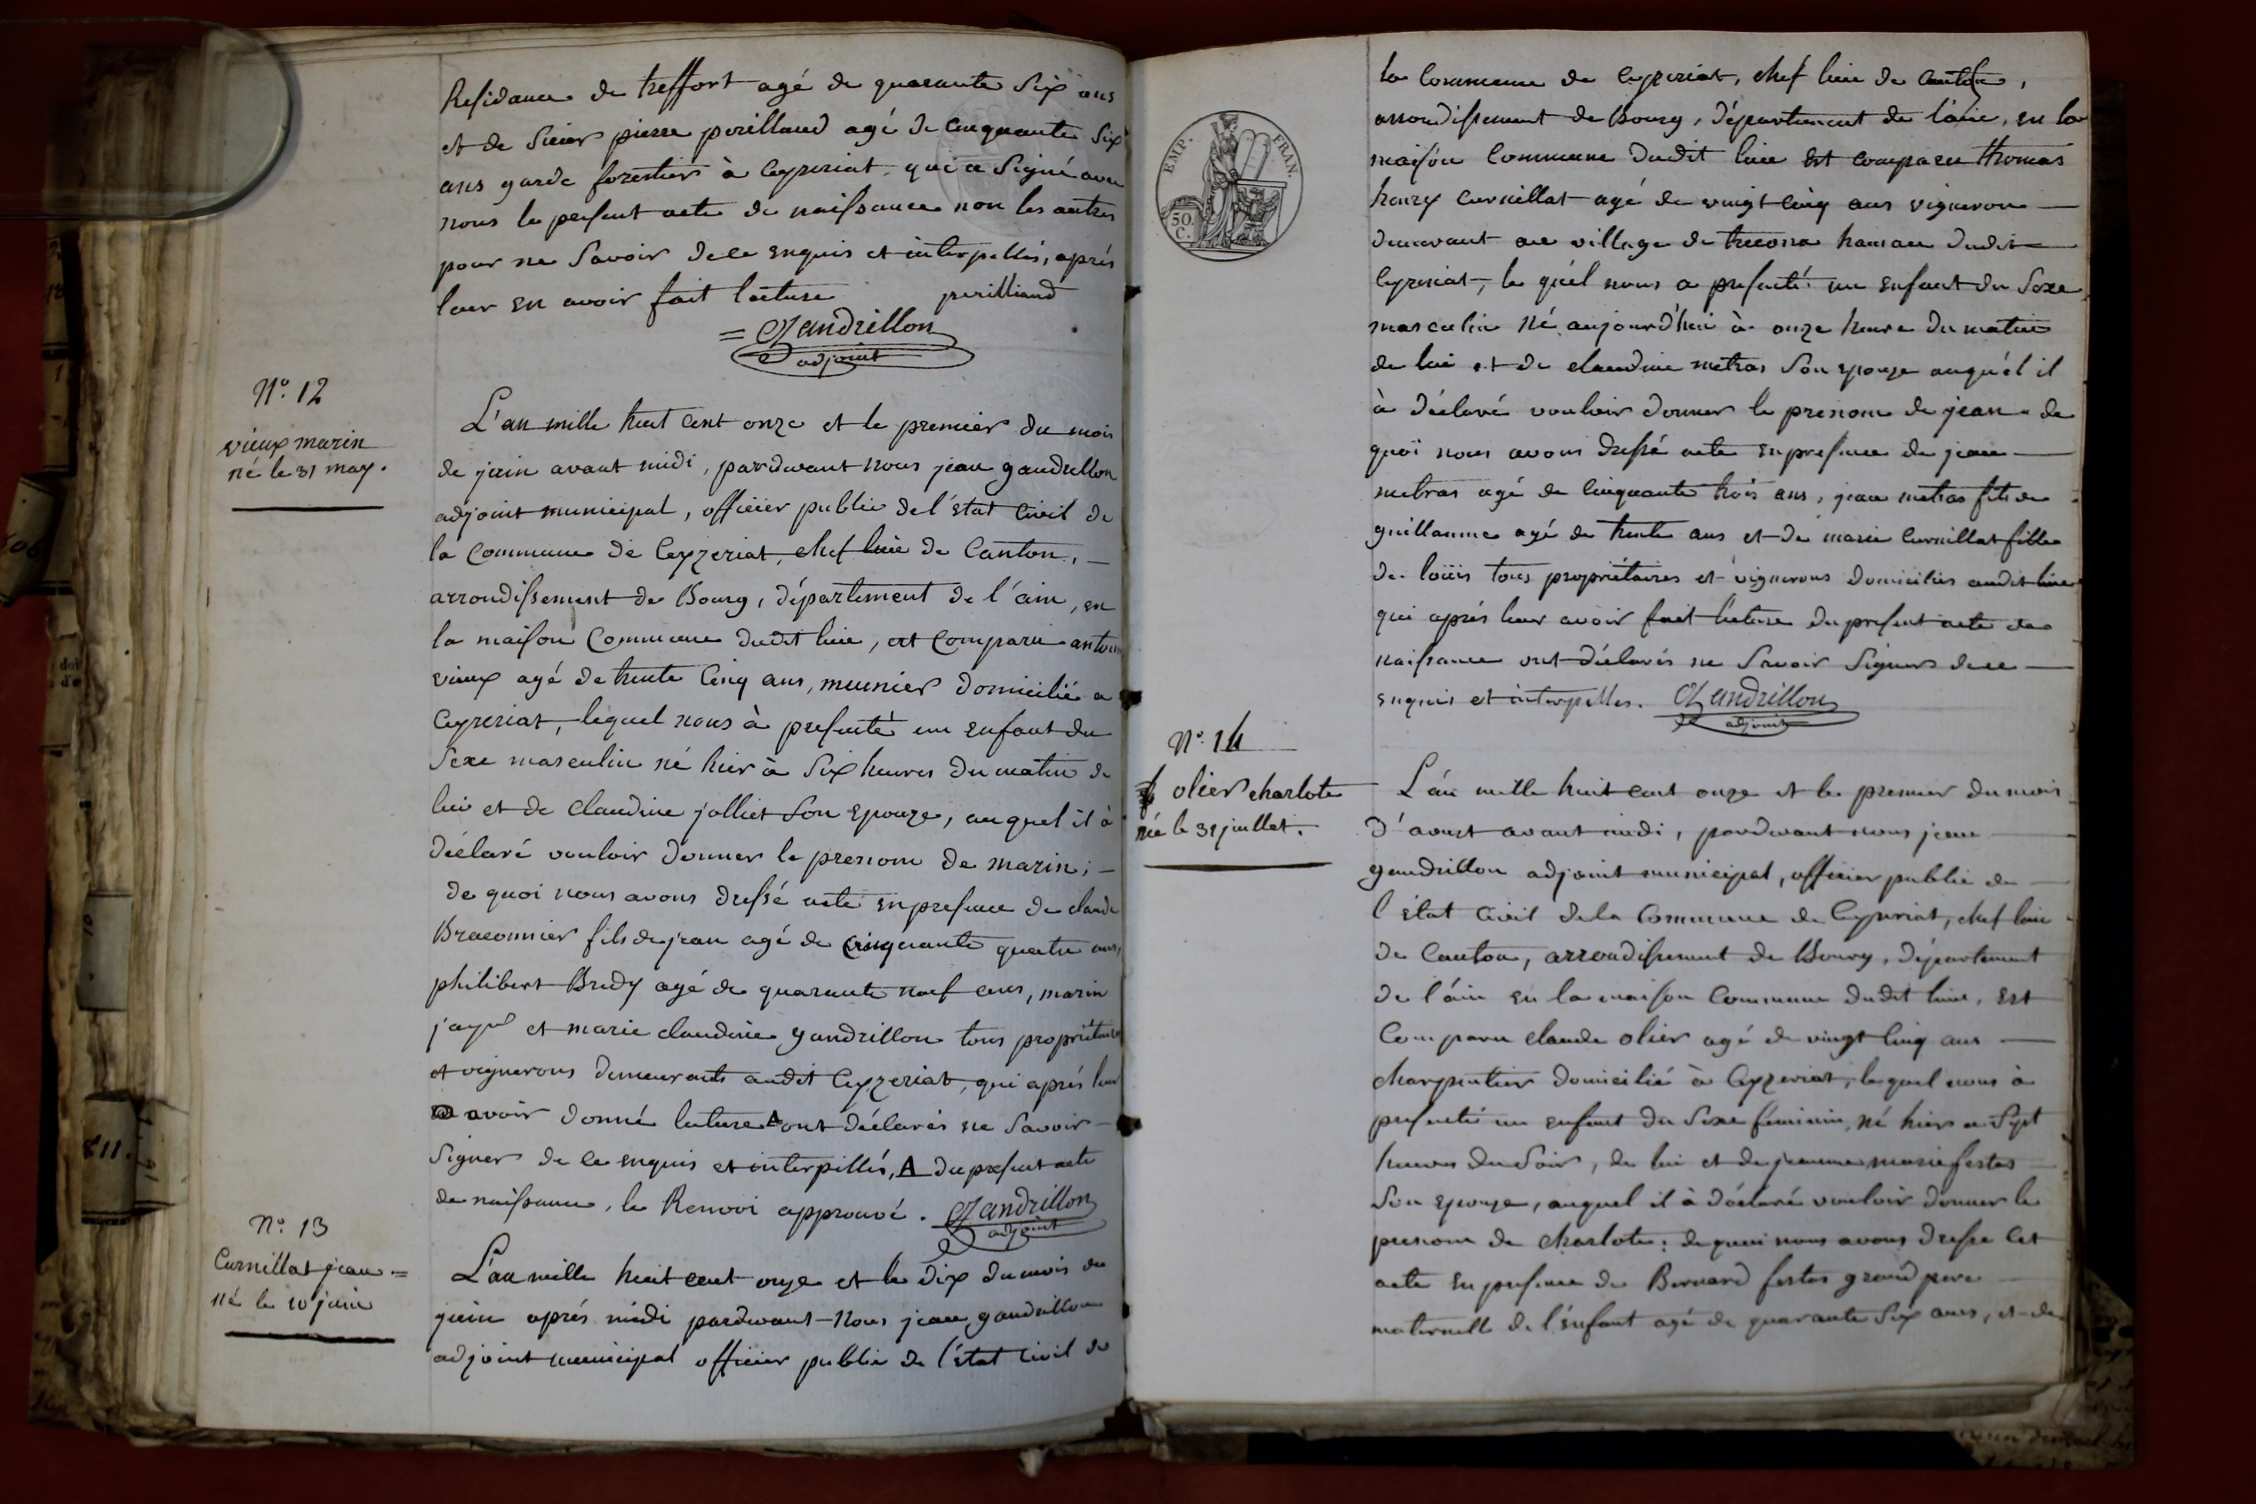 Residance de treffort agé de quarante Six ans
et de Sieur pierre perilland agé de cinquante Six
ans garde forestier à Ceyzeriat, qui a Signé avec
nous le present acte de naissance non les autres
pour ne Savoir de ce enquis et interpellés, aprés
leur en avoir fait lecture perilliand
= Gandrillon
adjoint
N.º 12
vieux marin
né le 31 may.
L'an mille huit cent onze et le premier du mois
de juin avant midi, pardevant nous jean gandrillon
adjoint municipal, officier public de l'état Civil de
la Commune de Ceyzeriat, chef lieu de Canton,
arrondissement de Bourg, département de l'ain, en
la maison Commune dudit lieu, est Comparu antoine
vieux agé de trente Cinq ans, meunier domicilié a
Ceyzeriat, lequel nous à presenté un enfant du
Sexe masculin né hier à Six heures du matin de
lui et de Claudine jolliet Son Epouze, auquel il à
déclaré vouloir donner le prenom de marin;
de quoi nous avons dressé acte en presence de claude
Braconnier fils de jean agé de Cinquante quatre ans,
philibert Bredy agé de quarante neuf ans, marin
et marie claudine gandrillon tous proprietaires
et vignerons demeurants audit Ceyzeriat, qui aprés leur
avoir donné lecture A ont déclarés ne Savoir
Signer de ce enquis et interpellés, A du present acte
de naissance, le Renvoi approuvé. Gandrillon
adjoint
N.º 13
Curnillat jean =
né le 10 juin
L'an mille huit cent onze et le dix du mois de
juin aprés midi pardevant Nous jean gandrillon
adjoint municipal officier public de l'état Civil de
EMP. FRAN.
50 C.
la Commune de Ceyzeriat, chef lieu de Canton,
arrondissement de Bourg, département de l'ain, en la
maison Commune dudit lieu Est comparu thomas
henry Curnillat agé de vingt Cinq ans vigneron
demeurant au village de treconna hameau dudit
Ceyzeriat, le quél nous a presenté un enfant du Sexe
masculin Né aujourd'hui à onze heure du matin
de lui et de claudine metras Son epouze auquél il
à déclaré vouloir donner le prenom de jean de
quoi nous avons dressé acte en presence de jean
metras agé de Cinquante trois ans, jean metras fils de
guillaume agé de trente ans et de marie Curnillat fille
de loüis tous propriétaires et vignerons domiciliés audit lieu
qui aprés leur avoir fait lecture du present acte de
naissance ont déclarés ne Savoir Signer de ce
enquis et interpellés. Gandrillon
adjoint
N.º 14
olier charlote
née le 31 juillet.
L'an mille huit cent onze et le premier du mois
d'aoust avant midi, pardevant nous jean
gandrillon adjoint municipal, officier public de
l'état Civil de la Commune de Ceyzeriat, chef lieu
de Canton, arrondissement de Bourg, département
de l'ain en la maison Commune dudit lieu, est
Comparu claude olier agé de vingt Cinq ans
charpentier domicilié à Ceyzeriat, lequel nous à
presenté un enfant du Sexe feminin, né hier a Sept
heures du Soir, de lui et de jeanne marie festas
Son epouze, auquel il à déclaré vouloir donner le
prenom de charlote: de quoi nous avons dressé cet
acte en presence de Bernard festas grand pere
maternelle de l'enfant agé de quarante Six ans, et de